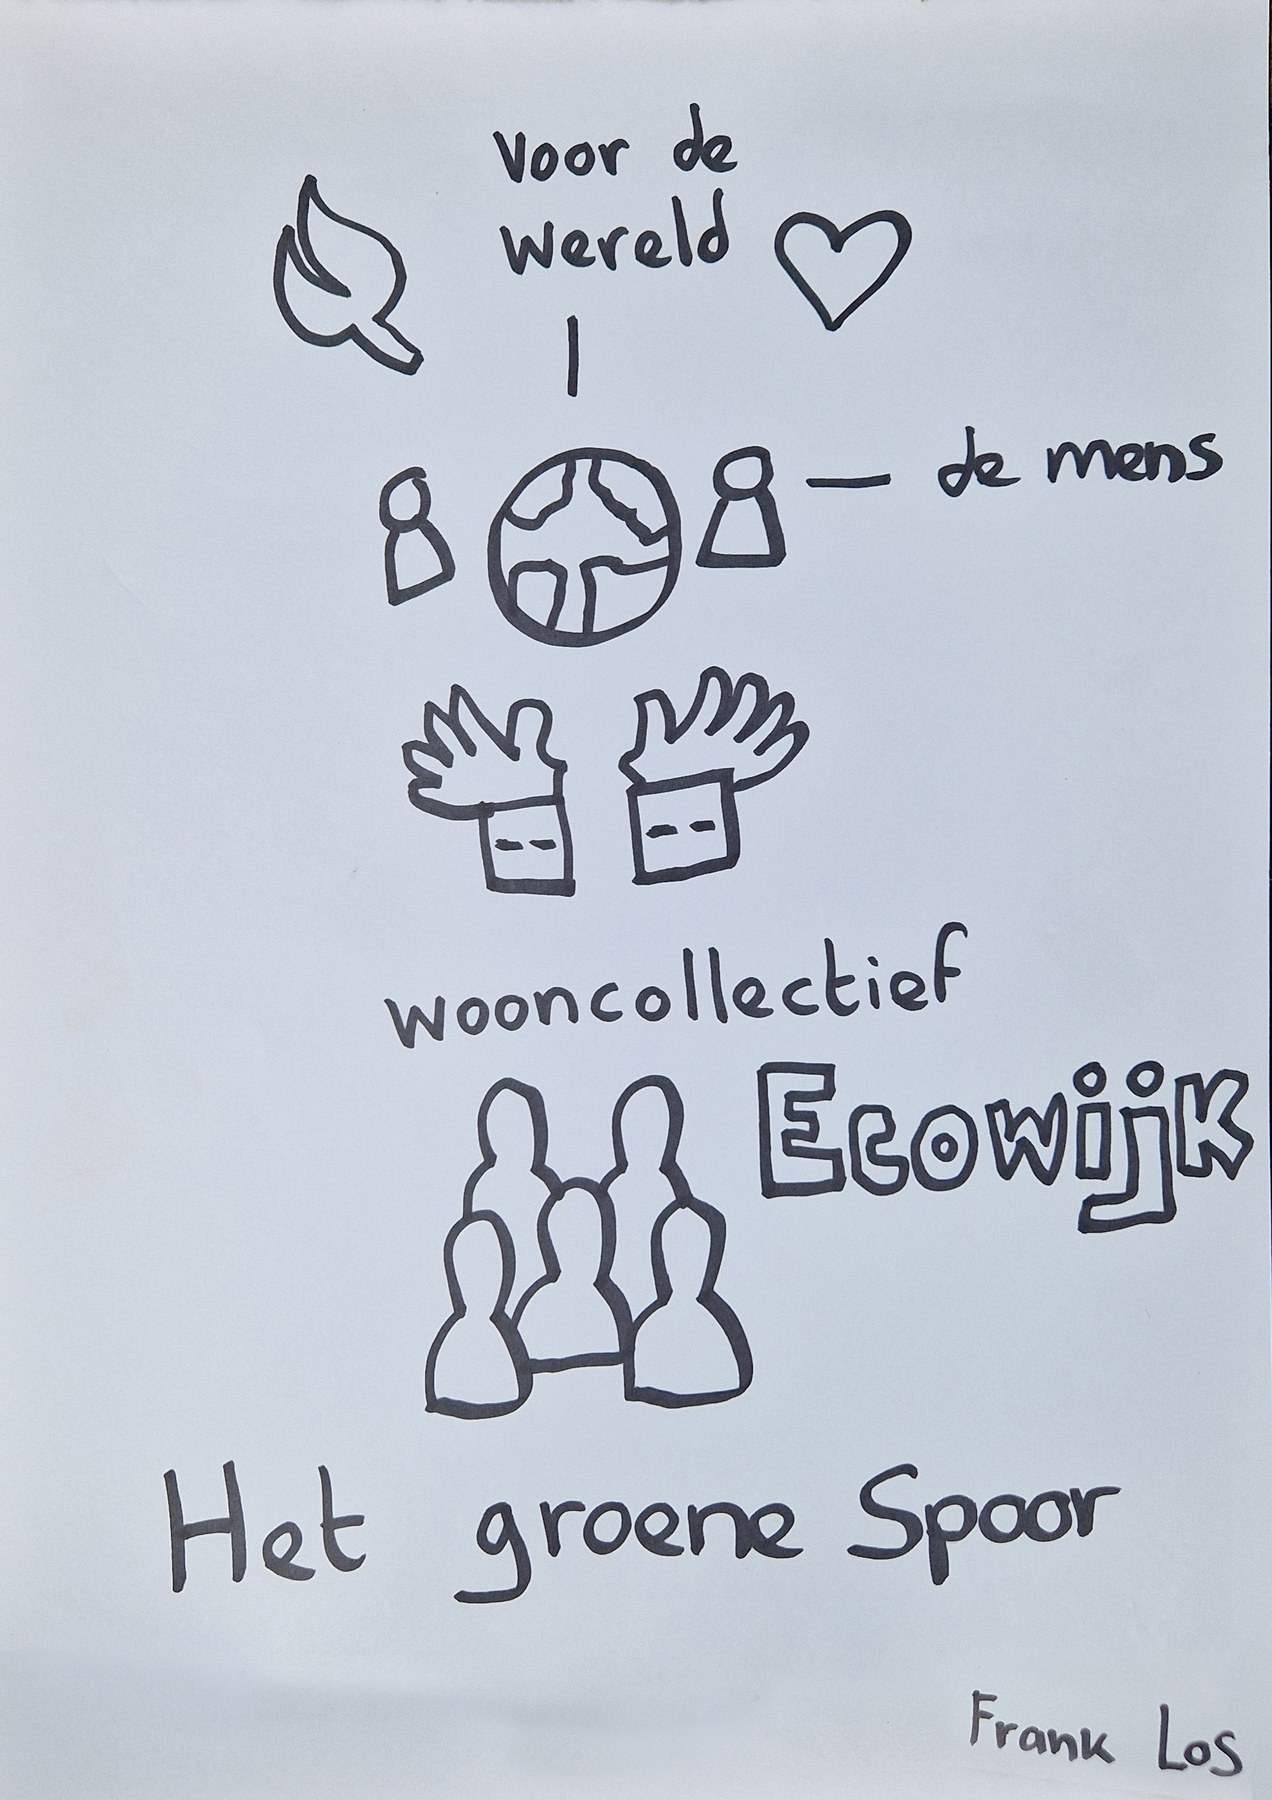 Voor de
wereld
de mens
wooncollectief
Ecowijk
Het groene Spoor
Frank Los